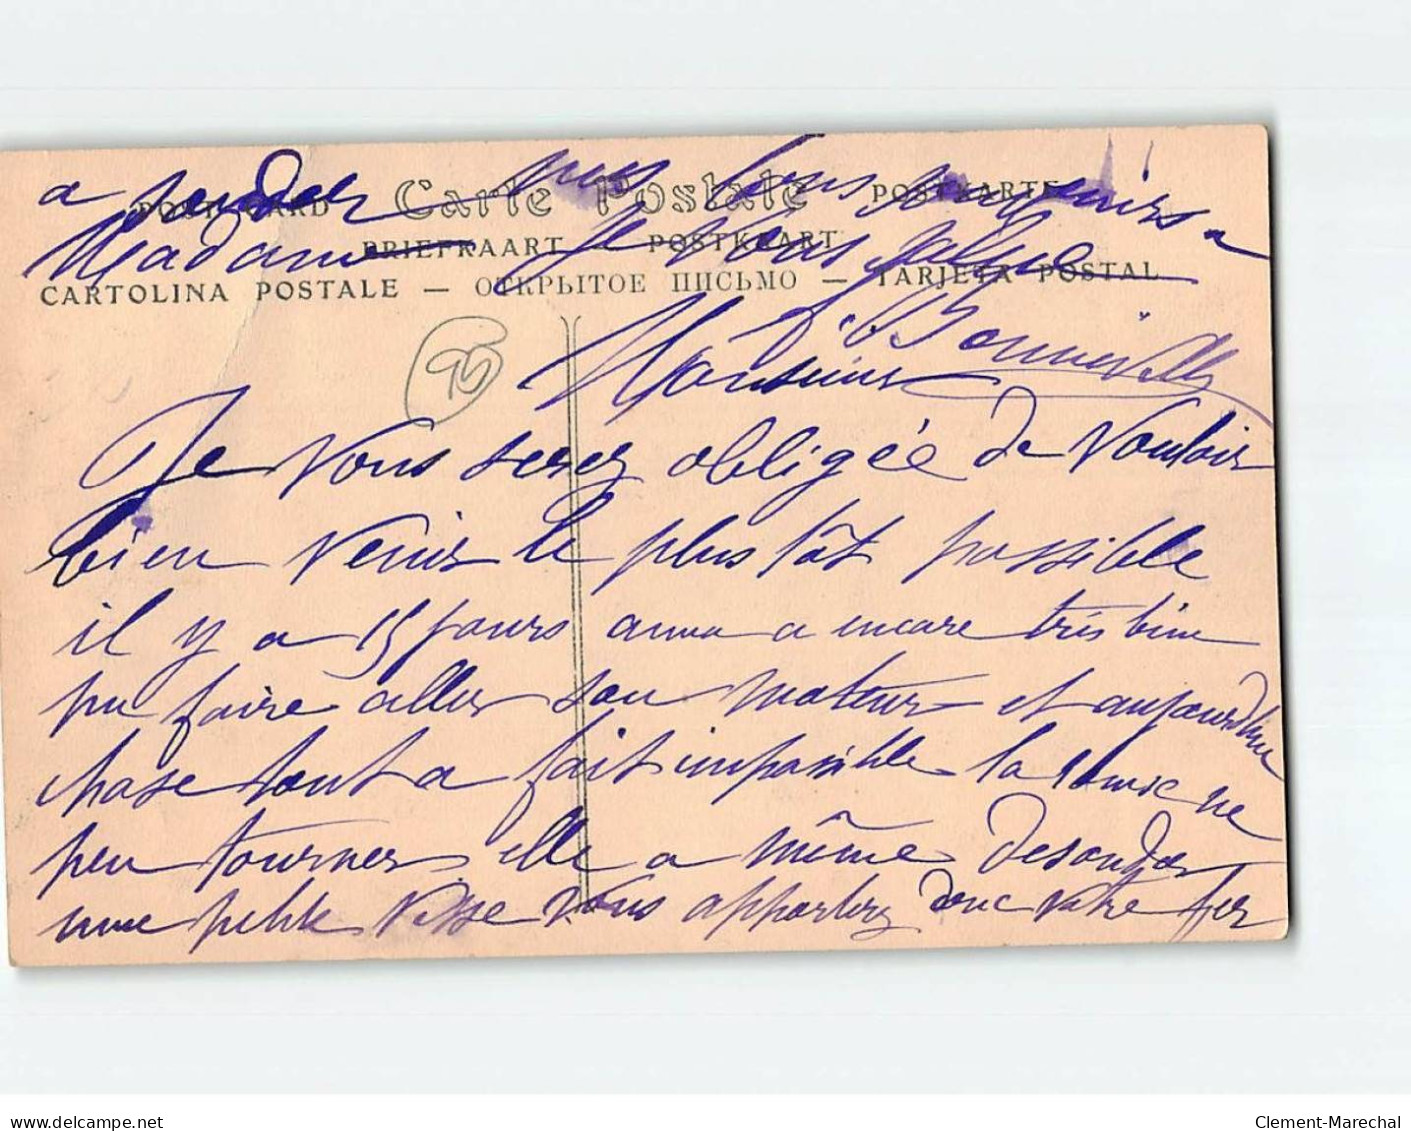 POST CARD Carte Postale POSTKARTE
BRIEFKAART POSTKAART
CARTOLINA POSTALE — ОТКРЫТОЕ ПИСЬМО — TARJETA POSTAL
95
Monsieur
Je vous serez obligée de vouloir
bien venir le plus tôt possible
il y a 15 jours a encore très bien
pu faire aller son moteur et aujourdhui
chose tout a fait impossible la ne
peu tourner elle a même desouder
une petite visse vous apporterez donc votre fer
a souder mes bons souvenirs a
Madame Je vous salue
Bonneville
Clement-Marechal